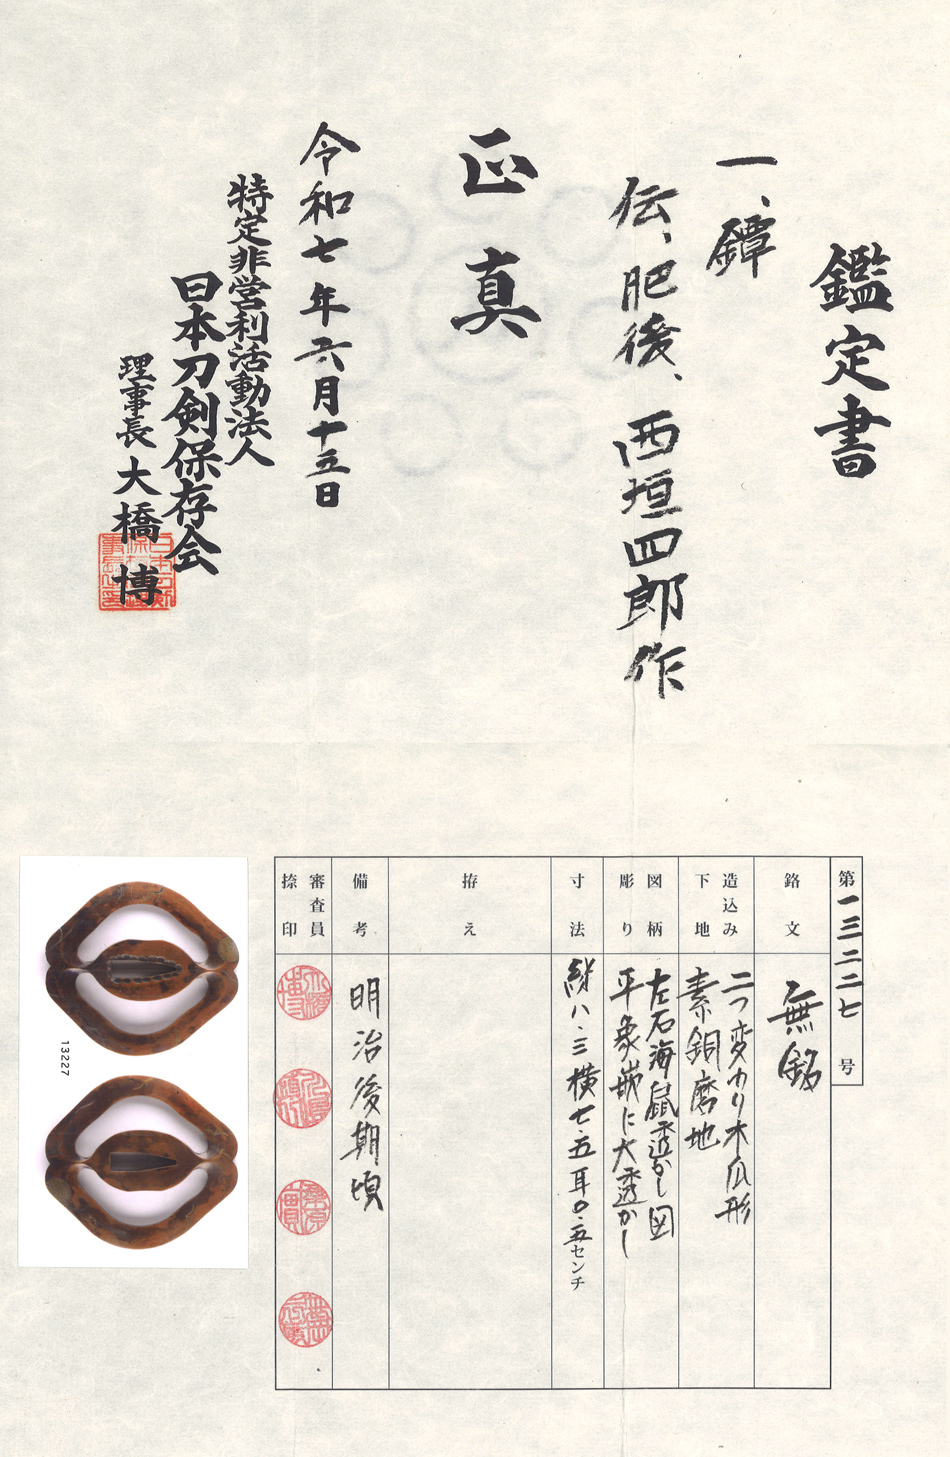 鑑定書
一、鐔
伝、肥後、西垣四郎作
正真
令和七年六月十五日
特定非営利活動法人
日本刀剣保存会
理事長 大橋 博
第一三二二七号
銘文
無銘
造込み
下地
二つ変わり木瓜形
素銅磨地
図柄
彫り
左右海鼠透かし図
平象嵌に大透かし
寸法
縦八・三横七・五耳〇・五センチ
拵え
備考
明治後期頃
審査員
捺印
13227